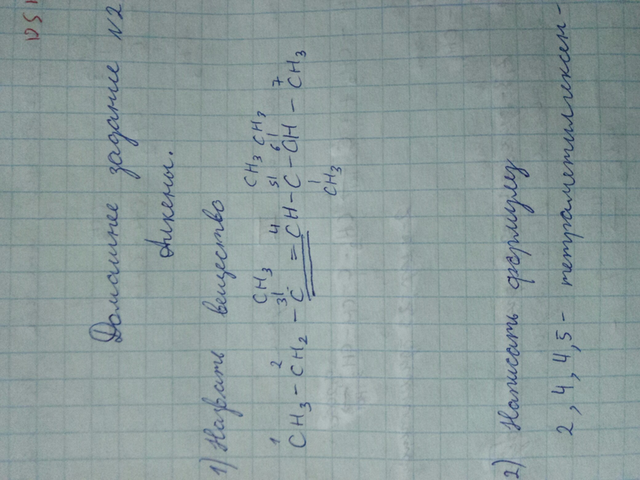 Домашнее задание N2
Алкены.
1) Назвать вещество
CH3 CH3 CH3
1 2 3 4 5 6 7
CH3 - CH2 - C = CH - C - CH - CH3
CH3
2) Написать формулу
2, 4, 4, 5 - тетраметилгексен -